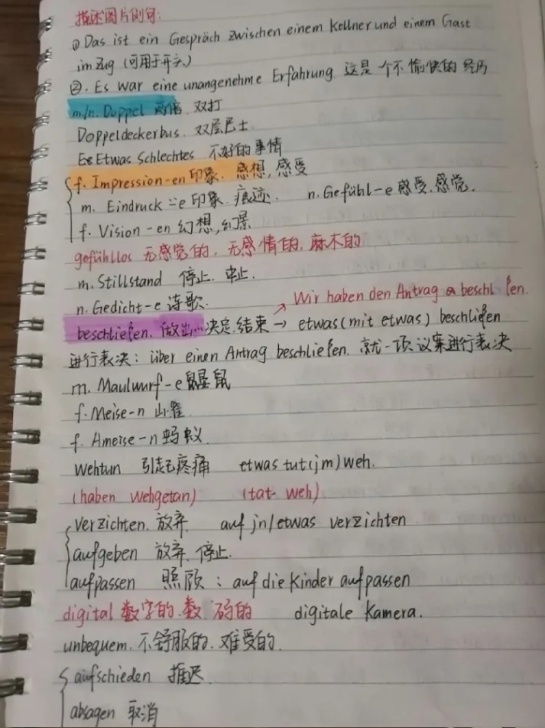 描述图片例句:
① Das ist ein Gespräch zwischen einem Kellner und einem Gast
im Zug (可用于开头)
②. Es war eine unangenehme Erfahrung 这是一个不愉快的经历
m/n. Doppel 双打
Doppeldeckerbus. 双层巴士.
Etwas Schlechtes 不好的事情
f. Impression-en 印象. 感想, 感受
m. Eindruck ⸚e 印象. 痕迹. n. Gefühl-e 感受、感觉.
f. Vision-en 幻想, 幻景
gefühllos 无感觉的, 无感情的, 麻木的
m. Stillstand 停止. 中止.
n. Gedicht-e 诗歌.
Wir haben den Antrag beschließen.
beschließen. 做出…决定. 结束 → etwas (mit etwas) beschließen
进行表决: über einen Antrag beschließen. 就一项议案进行表决
m. Maulwurf-e 鼹鼠
f. Meise-n 山雀
f. Ameise-n 蚂蚁.
wehtun 引起疼痛 etwas tut (jm) weh.
(haben wehgetan) (tat weh)
verzichten. 放弃 auf jn/etwas verzichten
aufgeben 放弃. 停止.
aufpassen 照顾: auf die Kinder aufpassen
digital 数字的. 数码的 digitale Kamera.
unbequem. 不舒服的. 难受的.
aufschieden 推迟
absagen 取消